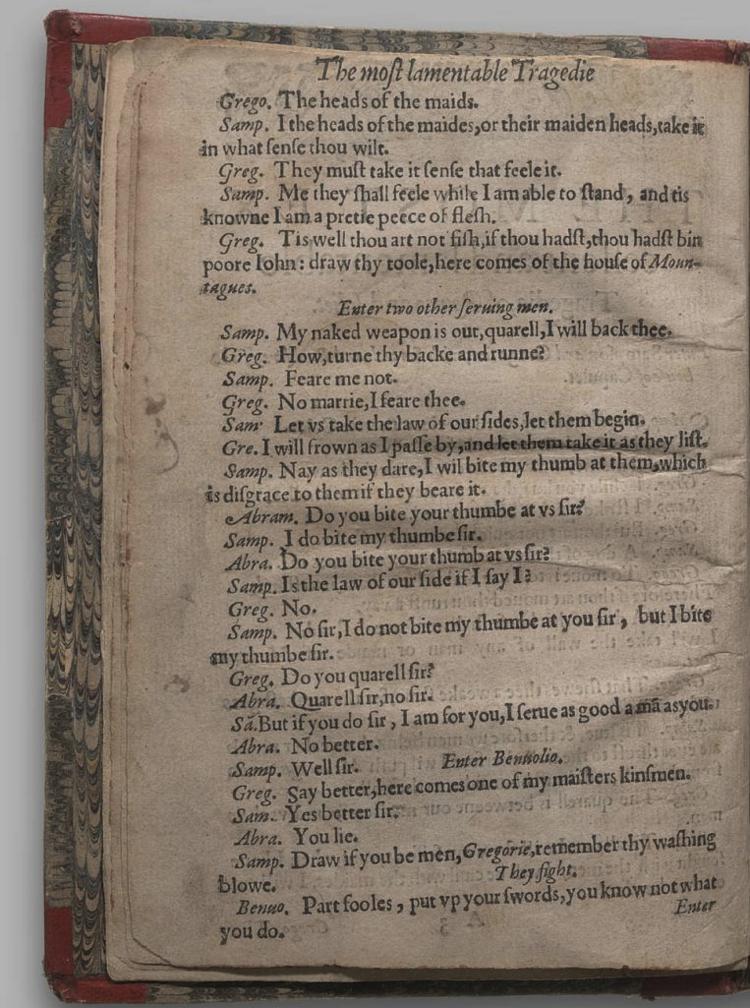 The moſt lamentable Tragedie
Grego. The heads of the maids.
Samp. I the heads of the maides,or their maiden heads,take it
in what ſenſe thou wilt.
Greg. They muſt take it ſenſe that feele it.
Samp. Me they ſhall feele while I am able to ſtand, and tis
knowne I am a pretie peece of fleſh.
Greg. Tis well thou art not fiſh,if thou hadſt,thou hadſt bin
poore Iohn: draw thy toole,here comes of the houſe of Moun-
tagues.
Enter two other ſeruing men.
Samp. My naked weapon is out,quarell,I will back thee.
Greg. How,turne thy backe and runne?
Samp. Feare me not.
Greg. No marrie,I feare thee.
Sam. Let vs take the law of our ſides,let them begin.
Gre. I will frown as I paſſe by,and let them take it as they liſt.
Samp. Nay as they dare,I wil bite my thumb at them,which
is diſgrace to them if they beare it.
Abram. Do you bite your thumbe at vs ſir?
Samp. I do bite my thumbe ſir.
Abra. Do you bite your thumb at vs ſir?
Samp. Is the law of our ſide if I ſay I?
Greg. No.
Samp. No ſir,I do not bite my thumbe at you ſir, but I bite
my thumbe ſir.
Greg. Do you quarell ſir?
Abra. Quarell ſir,no ſir.
Sā.But if you do ſir, I am for you,I ſerue as good a mā as you.
Abra. No better.
Samp. Well ſir. Enter Benuolio.
Greg. Say better,here comes one of my maiſters kinſmen.
Sam. Yes better ſir.
Abra. You lie.
Samp. Draw if you be men,Gregorie,remember thy waſhing
blowe. They fight.
Benuo. Part fooles, put vp your ſwords,you know not what
you do. Enter